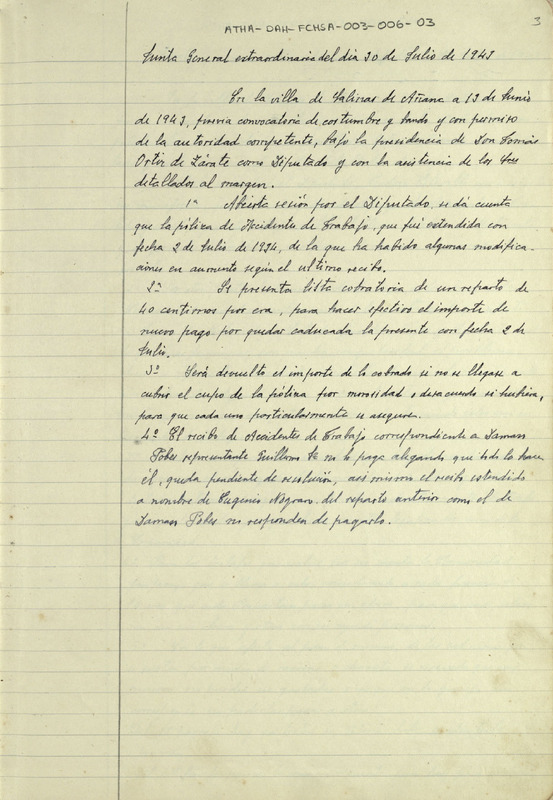 ATHA-DAH-FCHSA-003-006-03
3
Junta General extraordinaria del dia 30 de Julio de 1943
En la villa de Salinas de Añana a 13 de Junio
de 1943, previa convocatoria de costumbre y bando y con permiso
de la autoridad competente, bajo la presidencia de Don Tomás
Ortiz de Zárate como Diputado y con la asistencia de los tres
detallados al margen.
1º Abierta sesión por el Diputado, se dá cuenta
que la póliza de Accidentes de Trabajo, que fué extendida con
fecha 2 de Julio de 1934, de la que ha habido algunas modifica-
ciones en aumento según el ultimo recibo.
2º Se presenta lista cobratoria de un reparto de
40 centimos por era, para hacer efectivo el importe de
nuevo pago por quedar caducada la presente con fecha 2 de
Julio.
3º Será devuelto el importe de lo cobrado si no se llegase a
cubrir el cupo de la póliza por morosidad o desacuerdo si hubiera,
para que cada uno particularmente se asegure.
4º El recibo de Accidentes de Trabajo correspondiente a Damaso
Pobes representante Guillermo no le paga alegando que todo lo hace
él, queda pendiente de resolución, asi mismo el recibo extendido
a nombre de Eugenio del reparto anterior como el de
Damaso Pobes no responden de pagarlo.